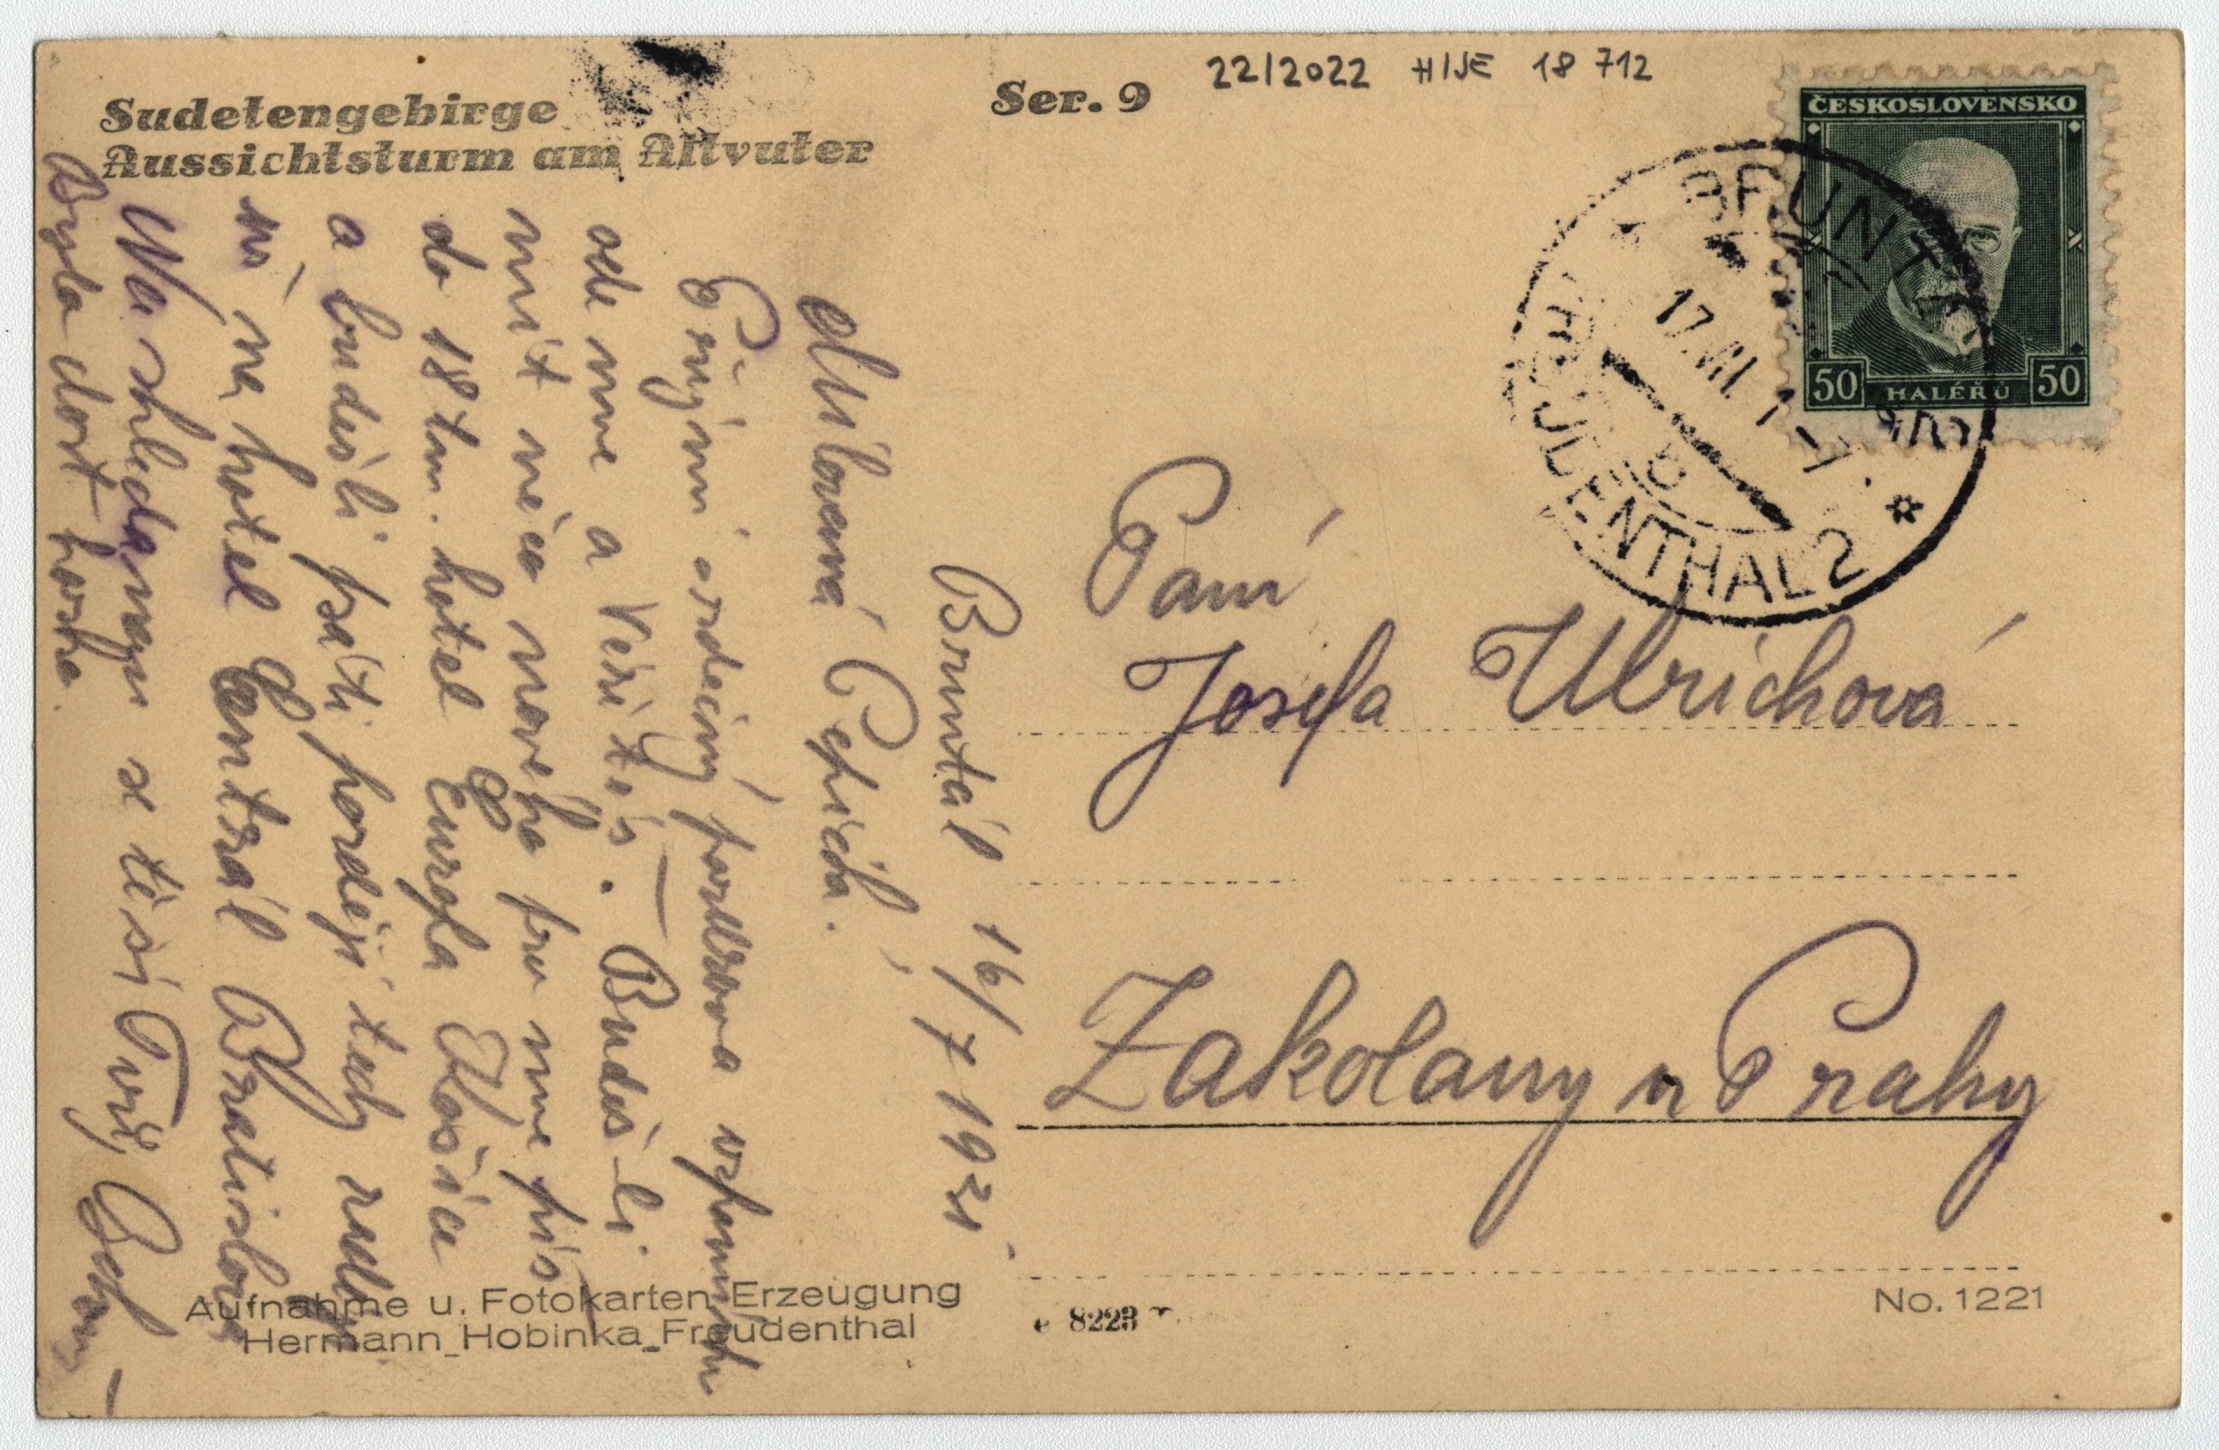 Sudetengebirge
Aussichtsturm am Altvater
Ser. 9
22/2022 H/JE 18 712
ČESKOSLOVENSKO
50 HALÉŘŮ 50
BRUNTÁL
17. VII. 31-7
FREUDENTHAL 2
Bruntál 16/7 1931.
Milovaná Pepičko.
Přijmi srdečný pozdrav a vzpomínku
ode mne a
Budeš-li
mít něco nového pro mne piš
do 18 tm. hotel Europa Košice
a budeš-li psáti později tedy
na hotel Centrál Bratislava
Na shledanou se těší Tvůj
Byla dost horka.
Paní
Josefa Ulrichová
Zakolany u Prahy
Aufnahme u. Fotokarten-Erzeugung
Hermann Hobinka Freudenthal
8223
No. 1221